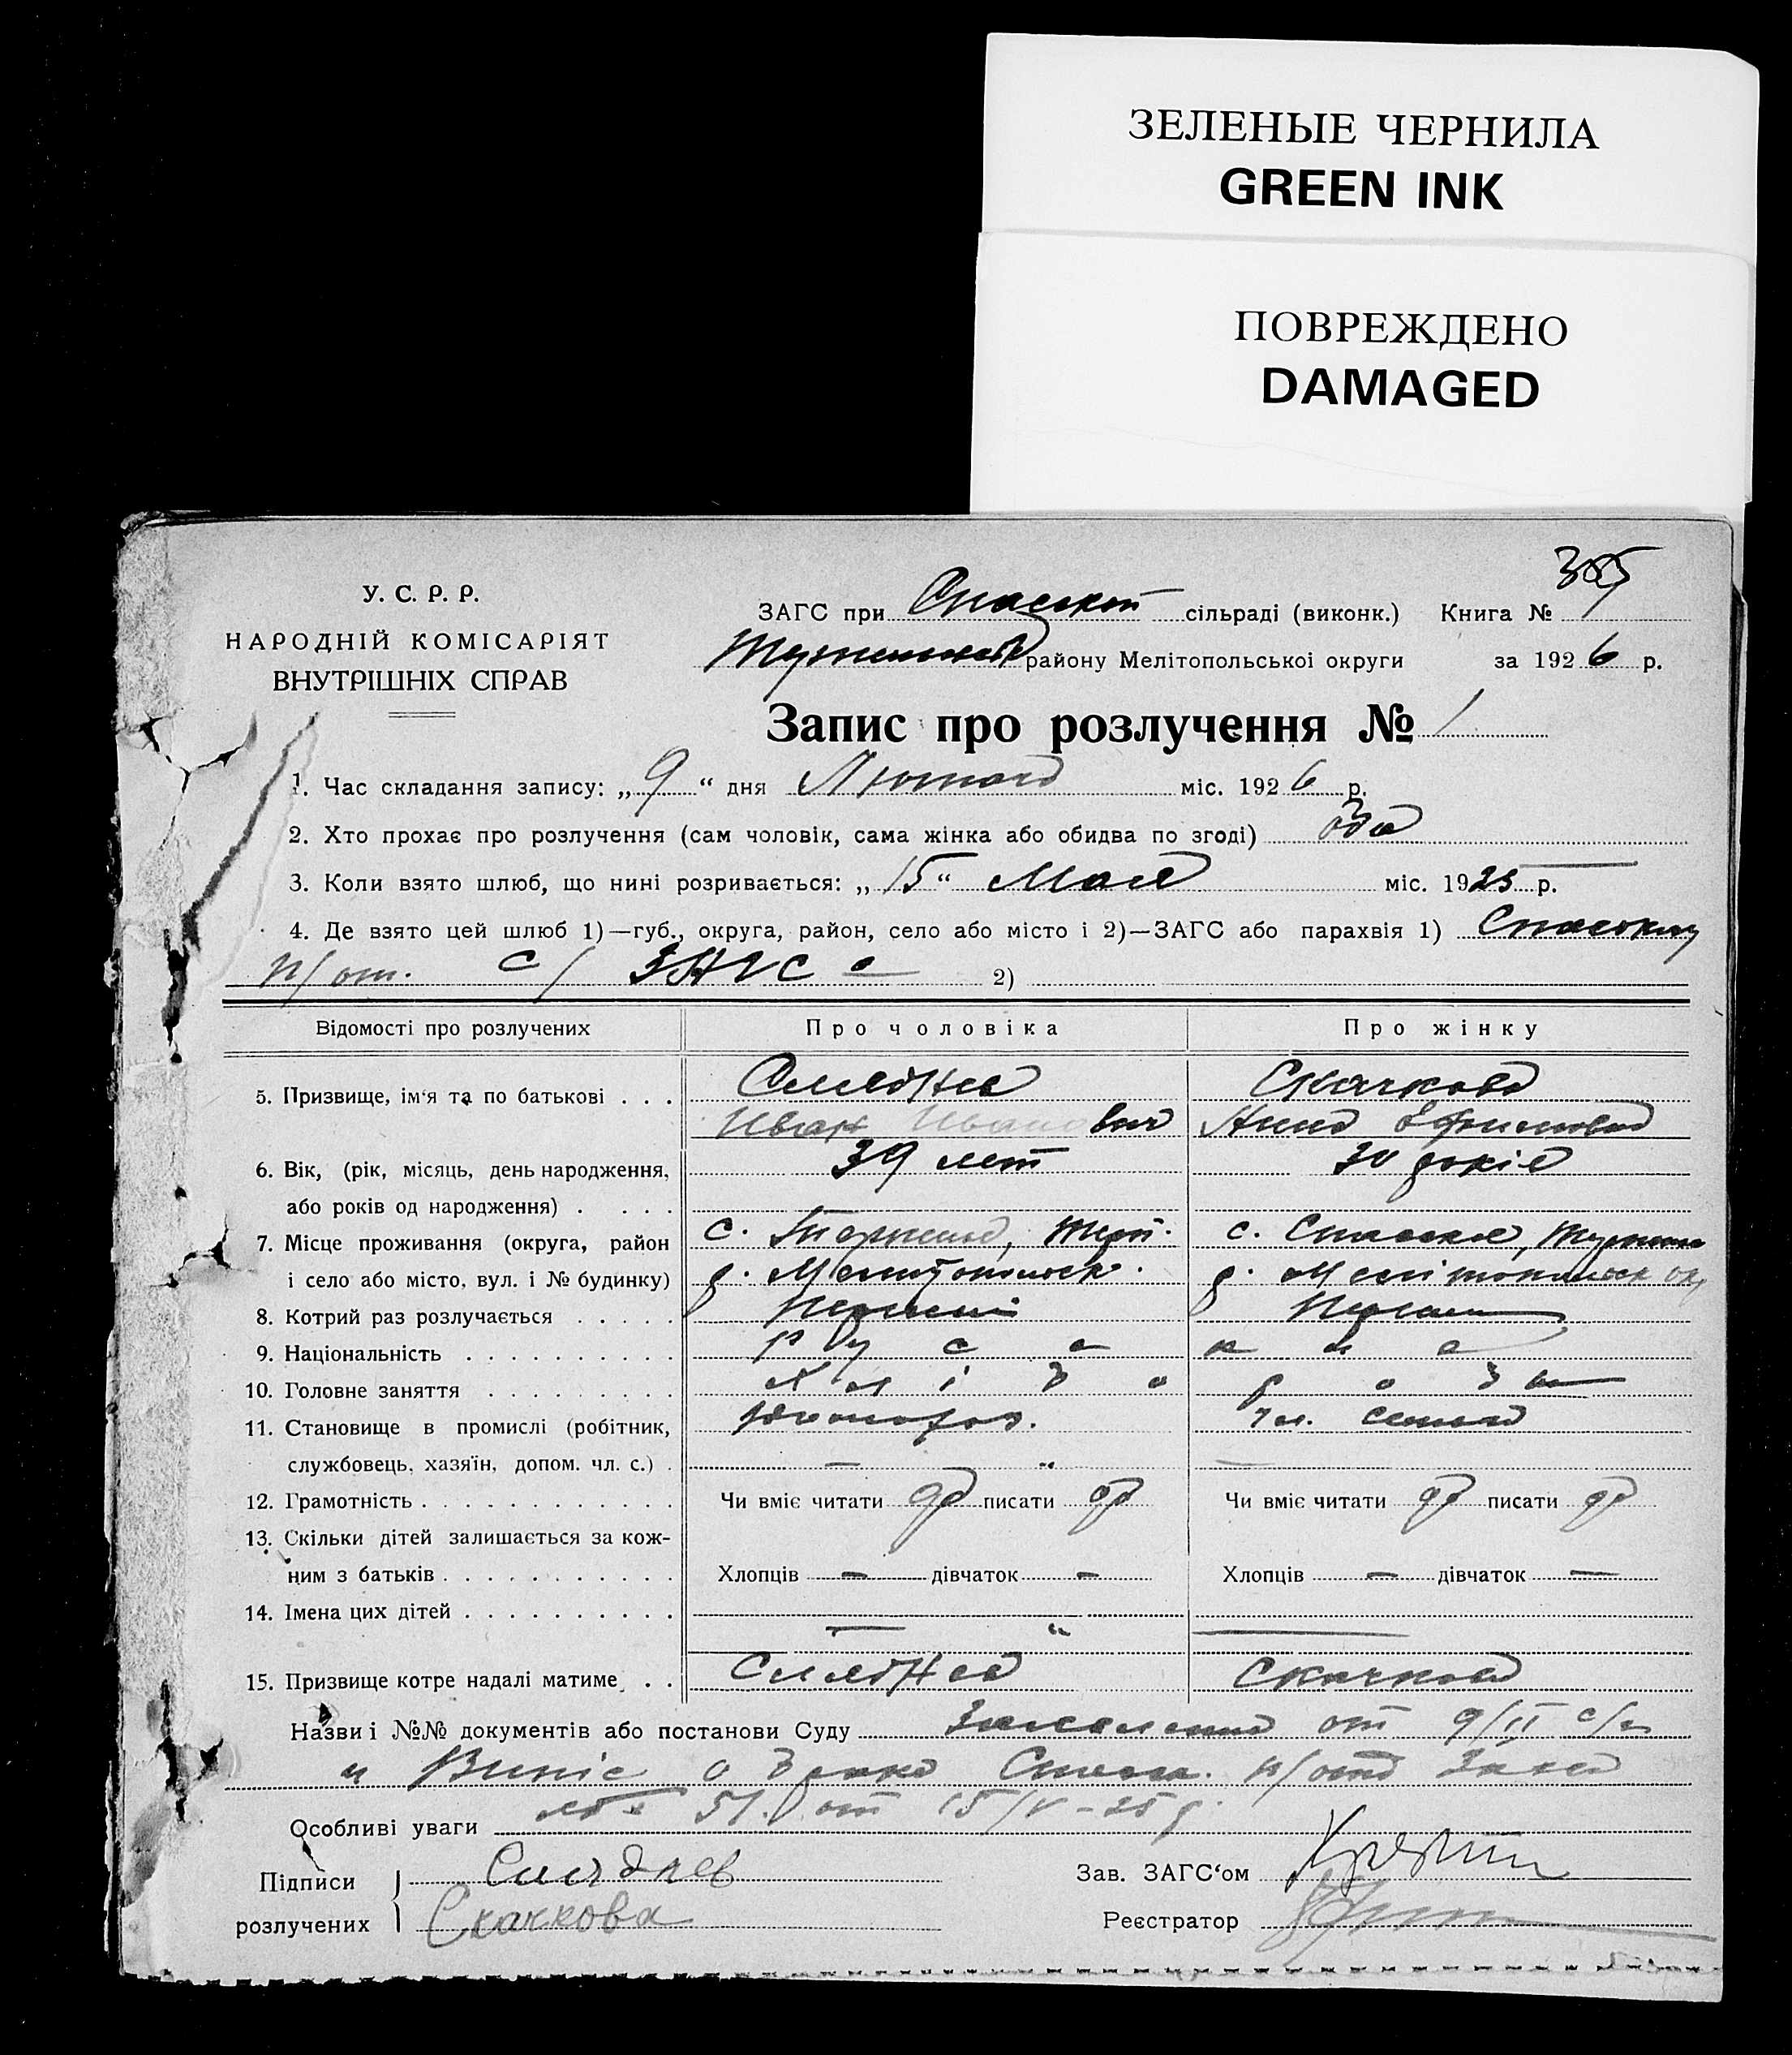 ЗЕЛЕНЫЕ ЧЕРНИЛА
GREEN INK
ПОВРЕЖДЕНО
DAMAGED
У. С. Р. Р.
НАРОДНІЙ КОМІСАРІЯТ
ВНУТРІШНІХ СПРАВ
ЗАГС при Спаській сільраді (виконк.) Книга №
району Мелітопольської округи за 1926 р.
Запис про розлучення № 1
1. Час складання запису: „9“ дня Лютого міс. 1926 р.
2. Хто прохає про розлучення (сам чоловік, сама жінка або обидва по згоді) оба
3. Коли взято шлюб, що нині розривається: „15“ Мая міс. 1925 р.
4. Де взято цей шлюб 1)—губ., округа, район, село або місто і 2)—ЗАГС або парахвія 1)
п/от. с/ ЗАГСе 2)
Відомості про розлучених Про чоловіка Про жінку
5. Призвище, ім‘я та по батькові . . . Скачкова
Иван Иванович Анна Ефимовна
6. Вік, (рік, місяць, день народження, 39 лет 30 років
або років од народження) . . . .
7. Місце проживання (округа, район с. с. Спаское,
і село або місто, вул. і № будинку) р. Мелитопольск. р. Мелітопольск ок,
8. Котрий раз розлучається . . . . .
9. Національність . . . . . . . . . . р у с с к и е
10. Головне заняття . . . . . . . . . х л і б о р о б
11. Становище в промислі (робітник, чл. семьи
службовець, хазяїн, допом. чл. с.) . — „ —
12. Грамотність . . . . . . . . . . . . Чи вміє читати да писати да Чи вміє читати да писати да
13. Скільки дітей залишається за кож-
ним з батьків . . . . . . . . . . . Хлопців — дівчаток — Хлопців — дівчаток —
14. Імена цих дітей . . . . . . . . . .
— „ —
15. Призвище котре надалі матиме . . Скачкова
Назви і №№ документів або постанови Суду Заявление от 9/II с/г
и Випіс о браке Спаск. п/отд Загса
№ 51. от 15/V-25 р.
Особливі уваги
Підписи
розлучених Скачкова
Зав. ЗАГС‘ом
Реєстратор